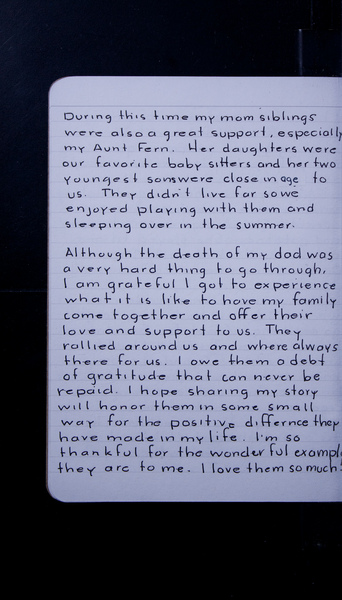 During this time my mom siblings
were also a great support, especially
my Aunt Fern. Her daughters were
our favorite baby sitters and her two
youngest sons were close in age to
us. They didn't live far so we
enjoyed playing with them and
sleeping over in the summer.
Although the death of my dad was
a very hard thing to go through,
I am grateful I got to experience
what it is like to have my family
come together and offer their
love and support to us. They
rallied around us and where always
there for us. I owe them a debt
of gratitude that can never be
repaid. I hope sharing my story
will honor them in some small
way for the positive differnce they
have made in my life. I'm so
thankful for the wonderful exampl
they are to me. I love them so much!